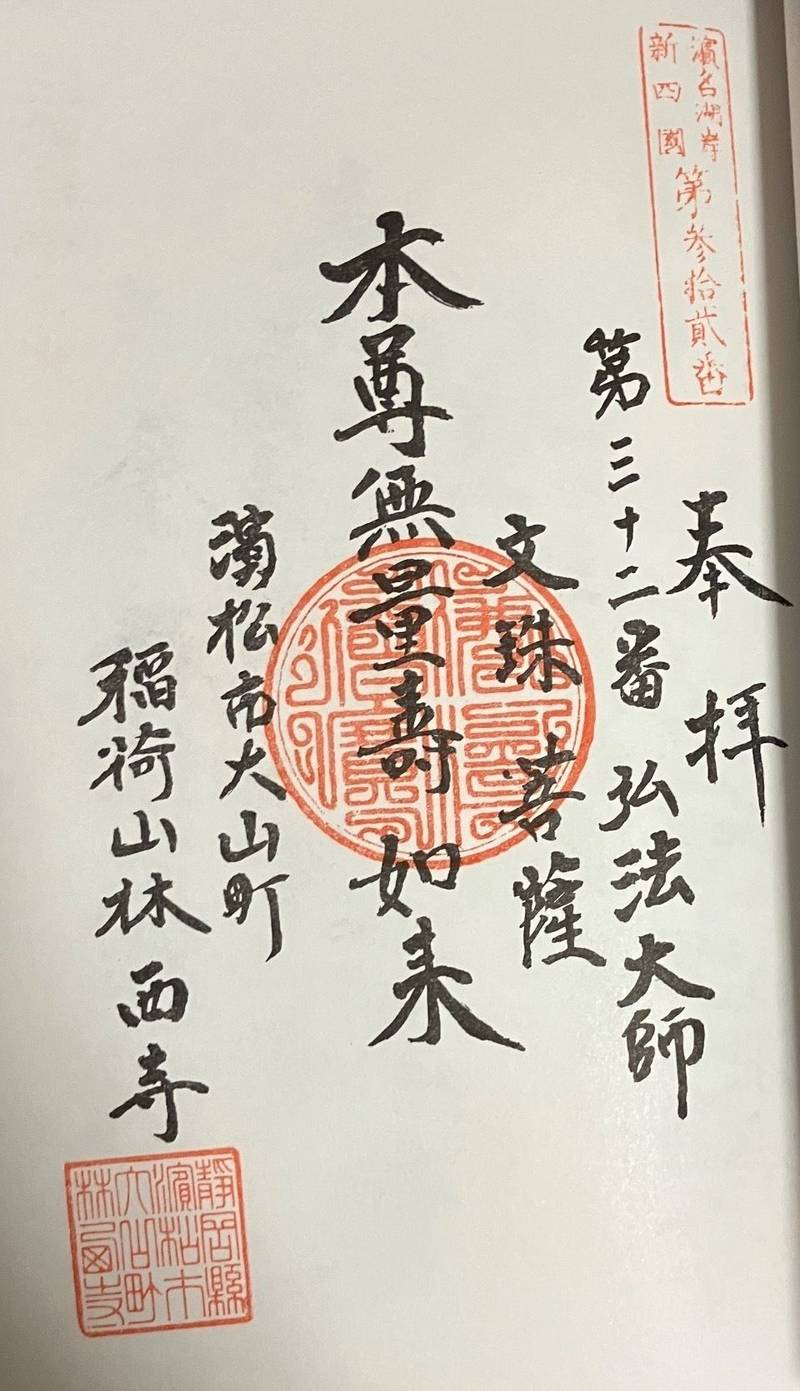 濱名湖岸
新四國
第参拾貳番
奉拝
第三十二番 弘法大師
文珠菩薩
本尊無量壽如来
濱松市大山町
稲荷山林西寺
靜岡縣
濱松市
大山町
林西寺